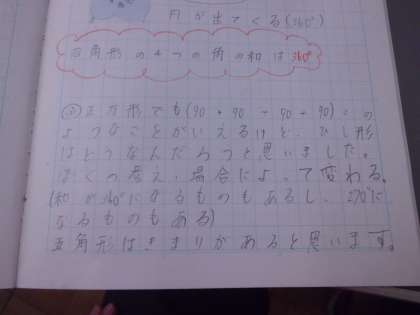 円が出てくる(360°)
四角形の4つの角の和は360°
②正方形でも(90+90+90+90)この
ようなことがいえるけど、ひし形
はどうなんだろうと思いました。
ぼくの考え、場合によって変わる。
(和が360°になるものもあるし、270°に
なるものもある)
五角形はきまりがあると思います。